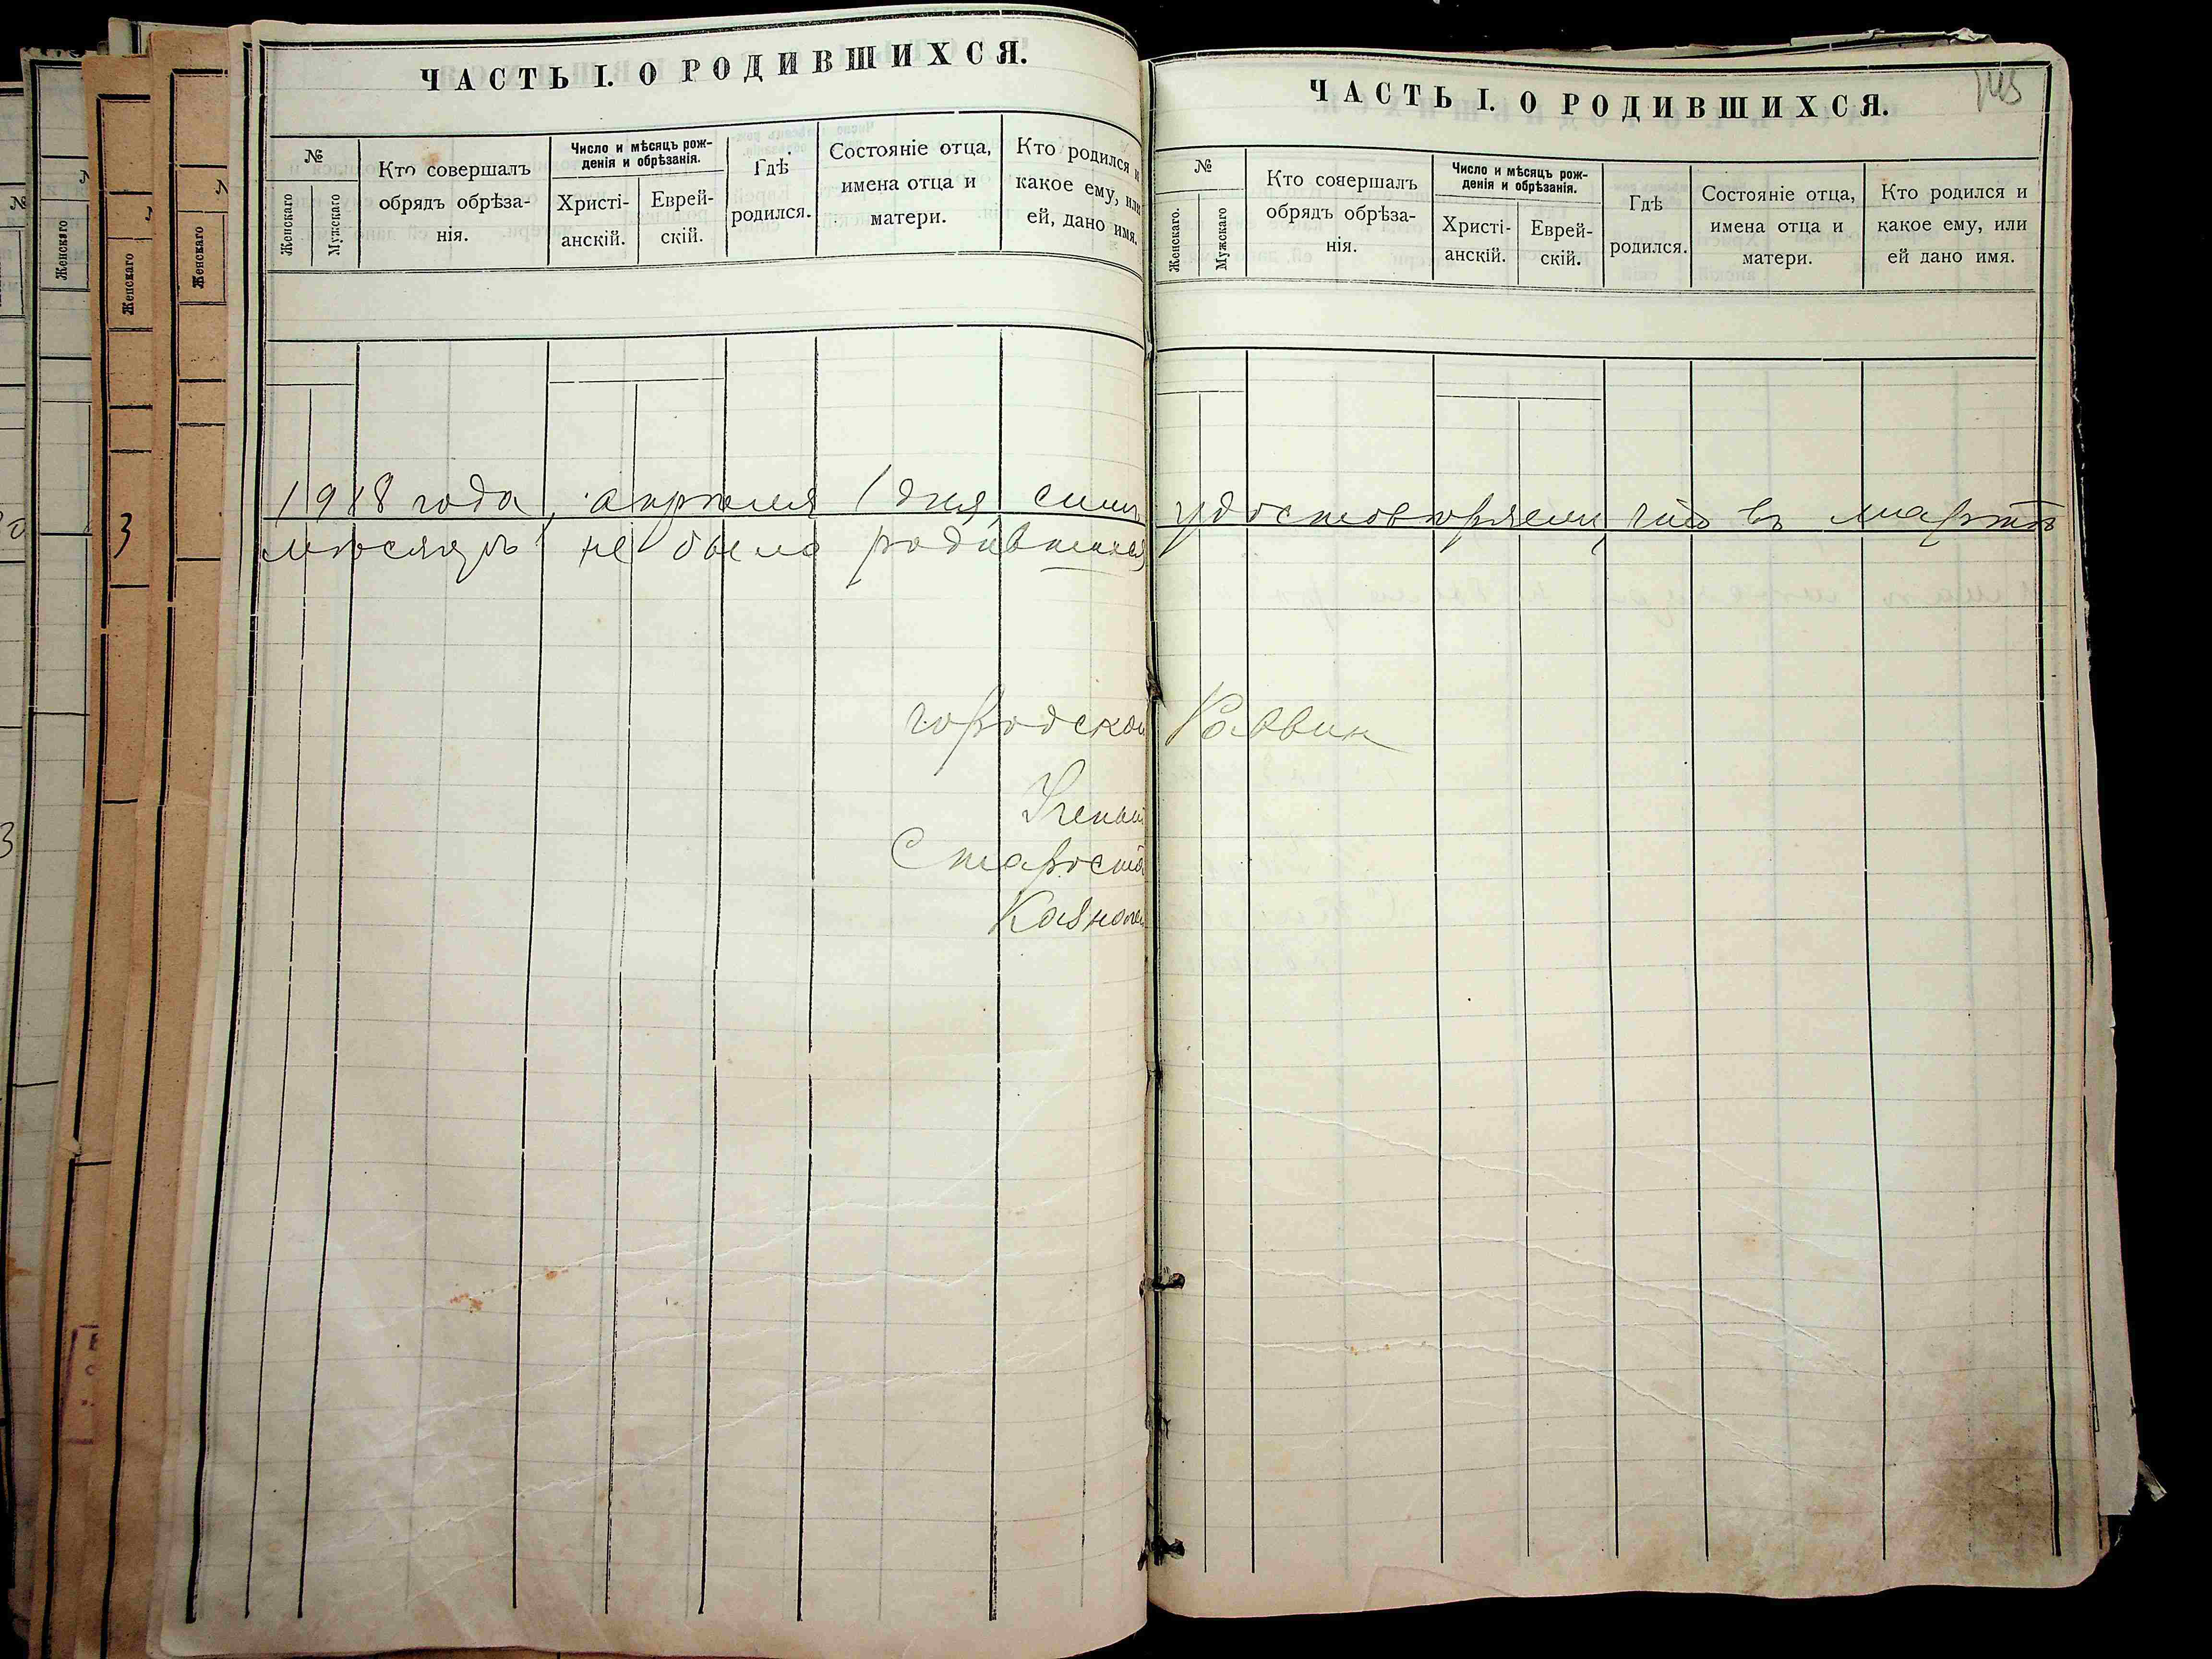 ЧАСТЬ I. О РОДИВШИХСЯ.
№
Женскаго
Мужскаго
Кто совершалъ
обрядъ обрѣза-
нія.
Число и мѣсяцъ рож-
денія и обрѣзанія.
Христі-
анскій.
Еврей-
скій.
Гдѣ
родился.
Состояніе отца,
имена отца и
матери.
Кто родился и
какое ему, или
ей, дано имя.
ЧАСТЬ I. О РОДИВШИХСЯ.
145
№
Женскаго.
Мужскаго
Кто совершалъ
обрядъ обрѣза-
нія.
Число и мѣсяцъ рож-
денія и обрѣзанія.
Христі-
анскій.
Еврей-
скій.
Гдѣ
родился.
Состояніе отца,
имена отца и
матери.
Кто родился и
какое ему, или
ей дано имя.
1918 года, апрѣля 1 дня, симъ удостовѣряемъ, что въ мартѣ
мѣсяцѣ не было родившихся
городской Раввин
Ученый
Староста
Казначей
№
Женскаго
Женскаго
Женскаго
3
3